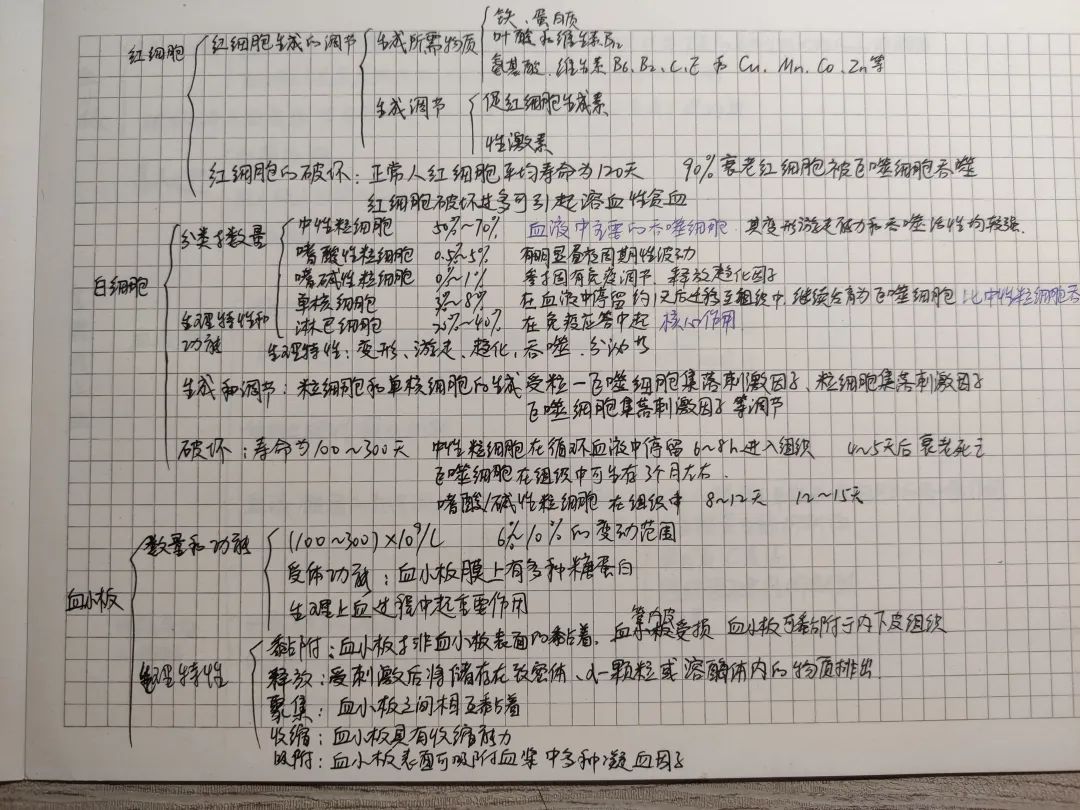 铁、蛋白质
红细胞 红细胞生成的调节 生成所需物质 叶酸和维生素B12
氨基酸、维生素B6、B2、C、E 和 Cu、Mn、Co、Zn等
生成调节 促红细胞生成素
性激素
红细胞的破坏：正常人红细胞平均寿命为120天 90%衰老红细胞被飞噬细胞吞噬
红细胞破坏过多可引起溶血性贫血
分类与数量 中性粒细胞 50%~70% 血液中主要的吞噬细胞，其变形游走能力和吞噬活性均较强.
嗜酸性粒细胞 0.5%~5% 有明显昼夜周期性波动
白细胞 嗜碱性粒细胞 0%~1% 参于固有免疫调节、释放趋化因子
单核细胞 3%~8% 在血液中停留约 后迁移至组织中,继续发育为飞噬细胞 比中性粒细胞吞
生理特性和功能 淋巴细胞 20%~40% 在免疫应答中起 核心作用
生理特性：变形、游走、趋化、吞噬、分泌等
生成和调节：粒细胞和单核细胞的生成受粒一飞噬细胞集落刺激因子、粒细胞集落刺激因子
飞噬细胞集落刺激因子等调节
破坏：寿命为100~300天 中性粒细胞在循环血液中停留6~8h进入组织 4~5天后衰老死亡
飞噬细胞在组织中可生存3个月左右.
嗜酸/碱性粒细胞 在组织中 8~12天 12~15天
数量和功能 (100~300)×10⁹/L 6%~10%的变动范围
血小板 受体功能：血小板膜上有多种糖蛋白
生理止血过程中起重要作用
生理特性 黏附：血小板于非血小板表面的黏着，血管内皮受损 血小板可黏附于内下皮组织
释放：受刺激后将储存在致密体、α-颗粒或溶酶体内的物质排出.
聚集：血小板之间相互黏着
收缩：血小板具有收缩能力
吸附：血小板表面可吸附血浆中多种凝血因子